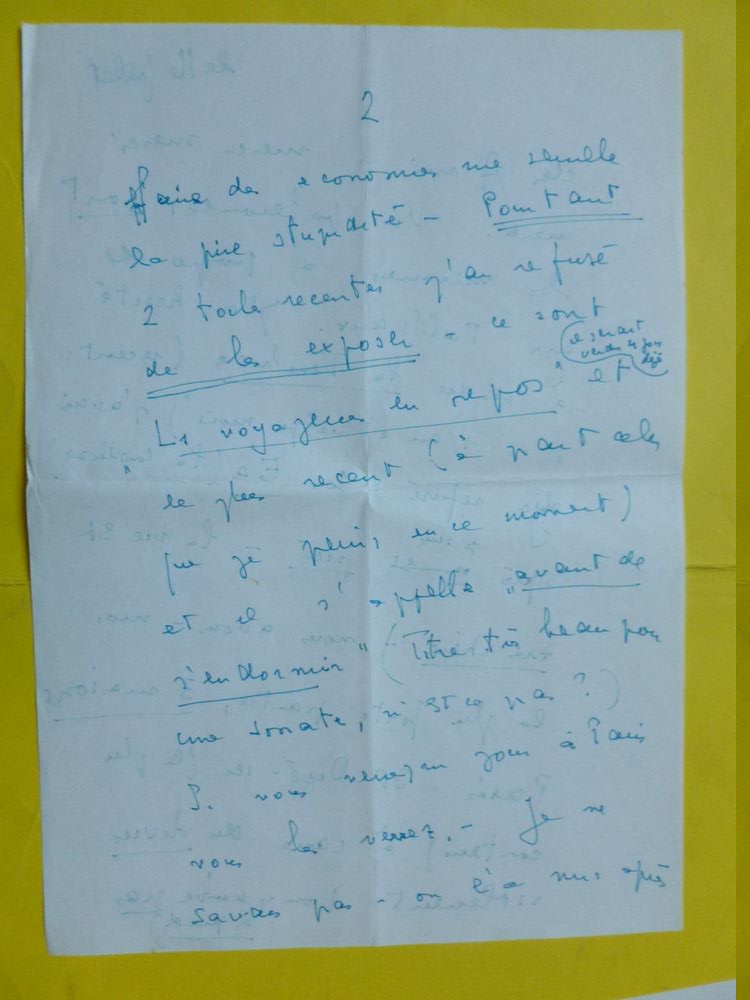 2
faire des economies me semble
la pire stupidité - Pourtant
2 toiles recentes j'ai refusé
de les exposer - ce sont
(ils seront
vendu le jour
déjà
"Les voyageurs en repos" et
le plus recent (à part cela
que je peins en ce moment)
et il s'appelle "avant de
s'endormir" (Titre très beau pour
une sonate, n'est ce pas?)
Si vous venez un jour à Paris
vous les verrez. - Je ne
savais pas - on l'a mis après